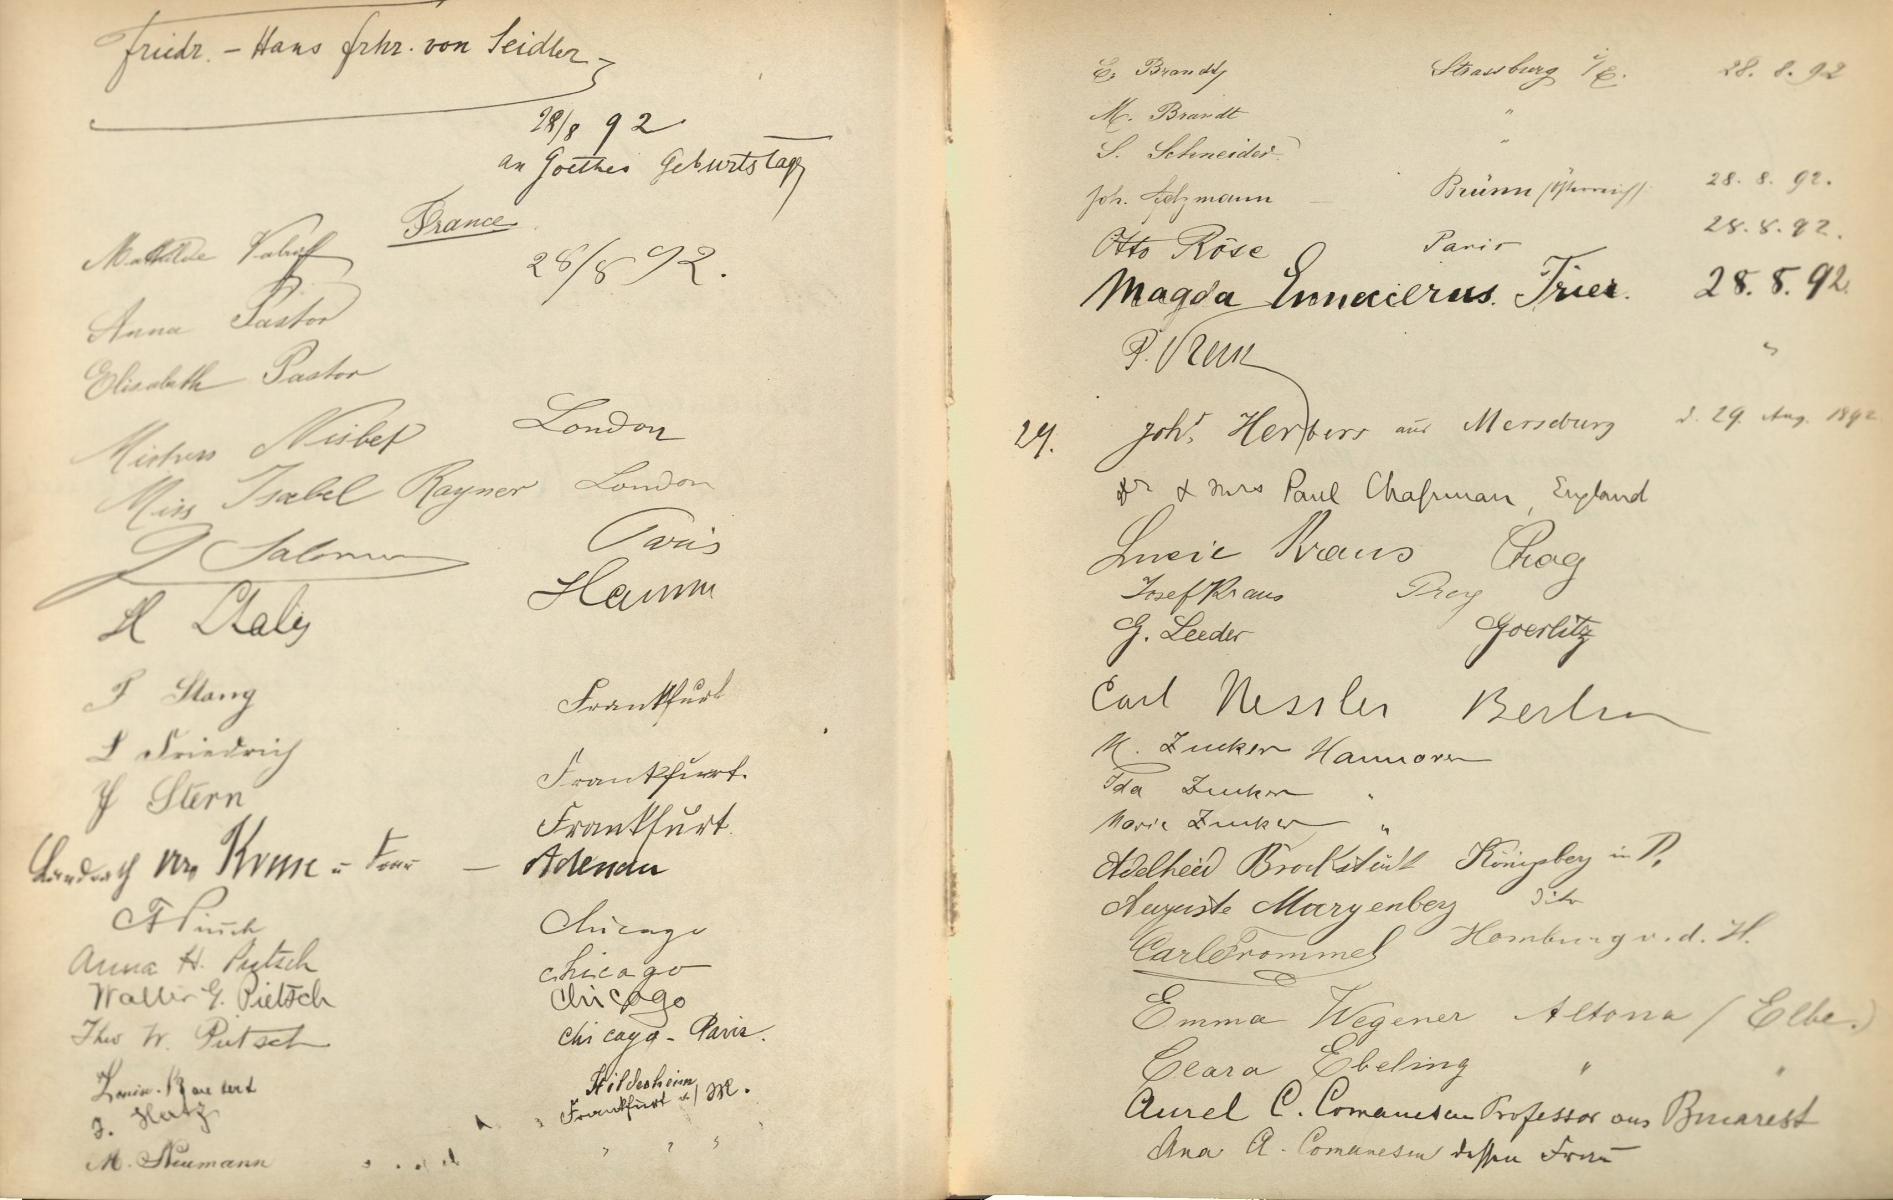 Friedr. - Hans Frhr. von Seidler
28/8 92
an Goethes Geburtstag
France
Mathilde
28/8 92.
Anna Pastor
Elisabeth Pastor
Mistress Nisbet London
Miss Isabel Rayner London
G Salomon Paris
H Hamm
F Stang Frankfurt
L Friedrich Frankfurt.
J Stern Frankfurt.
Landrath u Frau - Adenau
Chicago
Anna H. Pietsch Chicago
Walter G. Pietsch Chicago
Theo W. Pietsch Chicago - Paris.
Hildesheim
J. Hertz Frankfurt a/M.
M. Neumann " " "
E. Brandt Strassburg i/E. 28. 8. 92
M. Brandt "
S. Schneider "
Joh. Brünn 28. 8. 92.
Otto Röse Paris 28. 8. 92.
Magda Enneccerus. Trier. 28. 8. 92.
P. "
29. Joh. Herbers aus Merseburg d. 29. Aug. 1892
Dr & Mrs Paul Chapman, England
Lucie Kraus Prag
Josef Kraus Prag
G. Leeder Goerlitz
Carl Nessler Berlin
M. Zucker Hannover
Ida Zucker "
Marie Zucker "
Adelheid Brockstädt Königsberg in P.
Auguste Margenberg dito
Carl Frommel Homburg v. d. H.
Emma Wegener Altona (Elbe.)
Clara Ebeling " "
Aurel C. Comanescu Professor aus Bucarest
Ana A. Comanescu dessen Frau